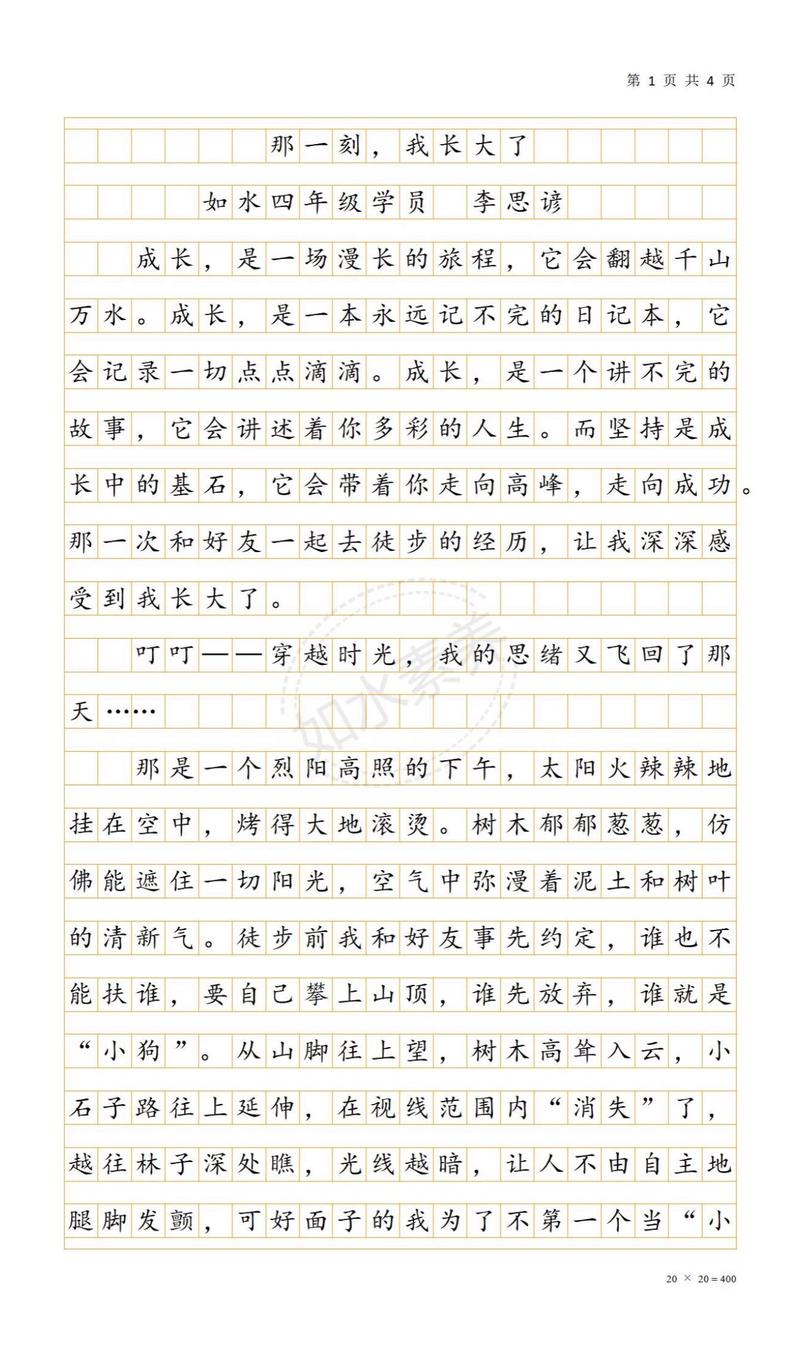 第 1 页 共 4 页
那一刻，我长大了
如水四年级学员 李思谚
成长，是一场漫长的旅程，它会翻越千山
万水。成长，是一本永远记不完的日记本，它
会记录一切点点滴滴。成长，是一个讲不完的
故事，它会讲述着你多彩的人生。而坚持是成
长中的基石，它会带着你走向高峰，走向成功。
那一次和好友一起去徒步的经历，让我深深感
受到我长大了。
叮叮——穿越时光，我的思绪又飞回了那
天……
那是一个烈阳高照的下午，太阳火辣辣地
挂在空中，烤得大地滚烫。树木郁郁葱葱，仿
佛能遮住一切阳光，空气中弥漫着泥土和树叶
的清新气。徒步前我和好友事先约定，谁也不
能扶谁，要自己攀上山顶，谁先放弃，谁就是
“小狗”。从山脚往上望，树木高耸入云，小
石子路往上延伸，在视线范围内“消失”了，
越往林子深处瞧，光线越暗，让人不由自主地
腿脚发颤，可好面子的我为了不第一个当“小
如水素美
20 × 20＝400